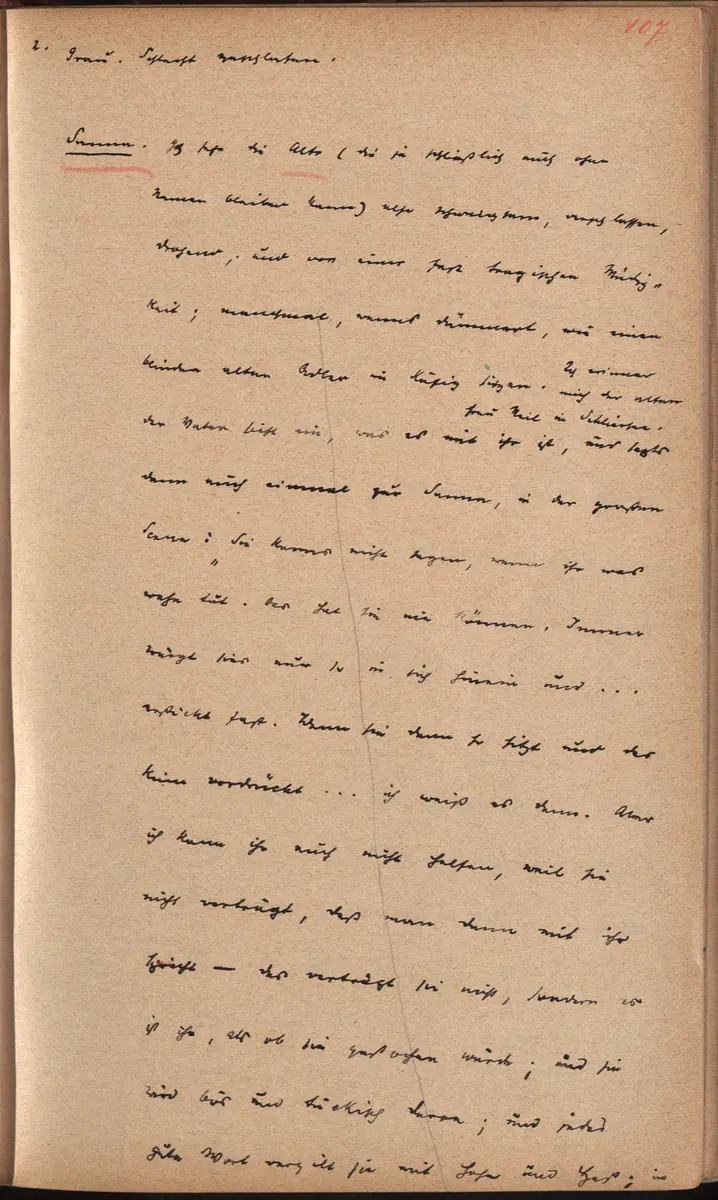 107
2. Grau. Schlecht geschlafen.
Sanna. Ich sehe die Alte (die ja schließlich auch ohne
Namen bleiben kann) also schweigsam, verschlossen,
drohend, und von einer fast tragischen Müdig-
keit; manchmal, wenns dämmert, wie einen
blinden alten Adler im Käfig sitzen. Ich erinner
mich der alten
Frau Keil in Schliersee.
der Vater sieht ein, was es mit ihr ist, und sagts
dann auch einmal zur Sanna, in der großen
Scene: „Sie kanns nicht sagen, wenn ihr was
weh tut. Das hat sie nie können. Immer
würgt sies nur so in sich hinein und ...
erstickt fast. Wenn sie dann so sitzt und das
Kinn vordrückt ... ich weiß es dann. Aber
ich kann ihr auch nicht helfen, weil sie
nicht verträgt, daß man dann mit ihr
spricht — das verträgt sie nicht, sondern es
ist ihr, als ob sie gestochen würde; und sie
wird bös und tückisch davon; und jedes
gute Wort vergilt sie mit Hohn und Haß; in